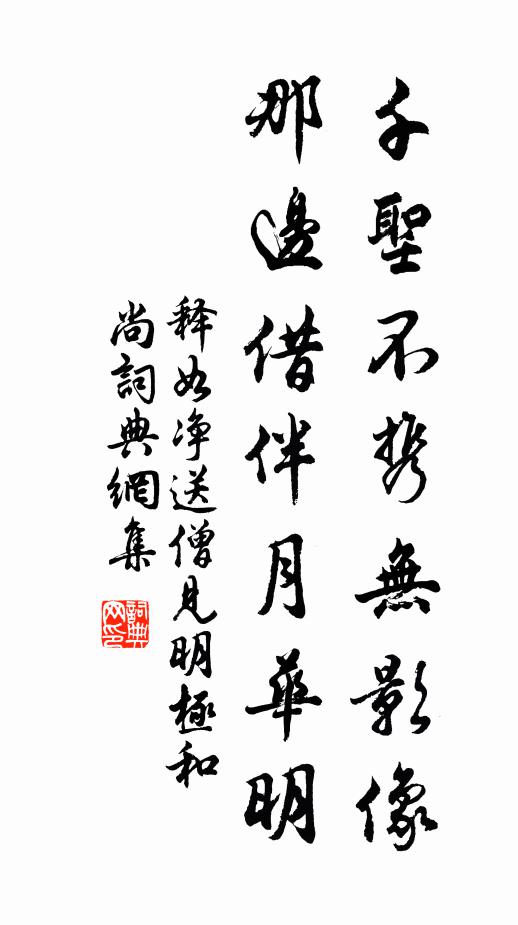 千聖不携無影像
那邊借伴月華明
释如净送僧見明極和
尚詞典網集
詞典網印